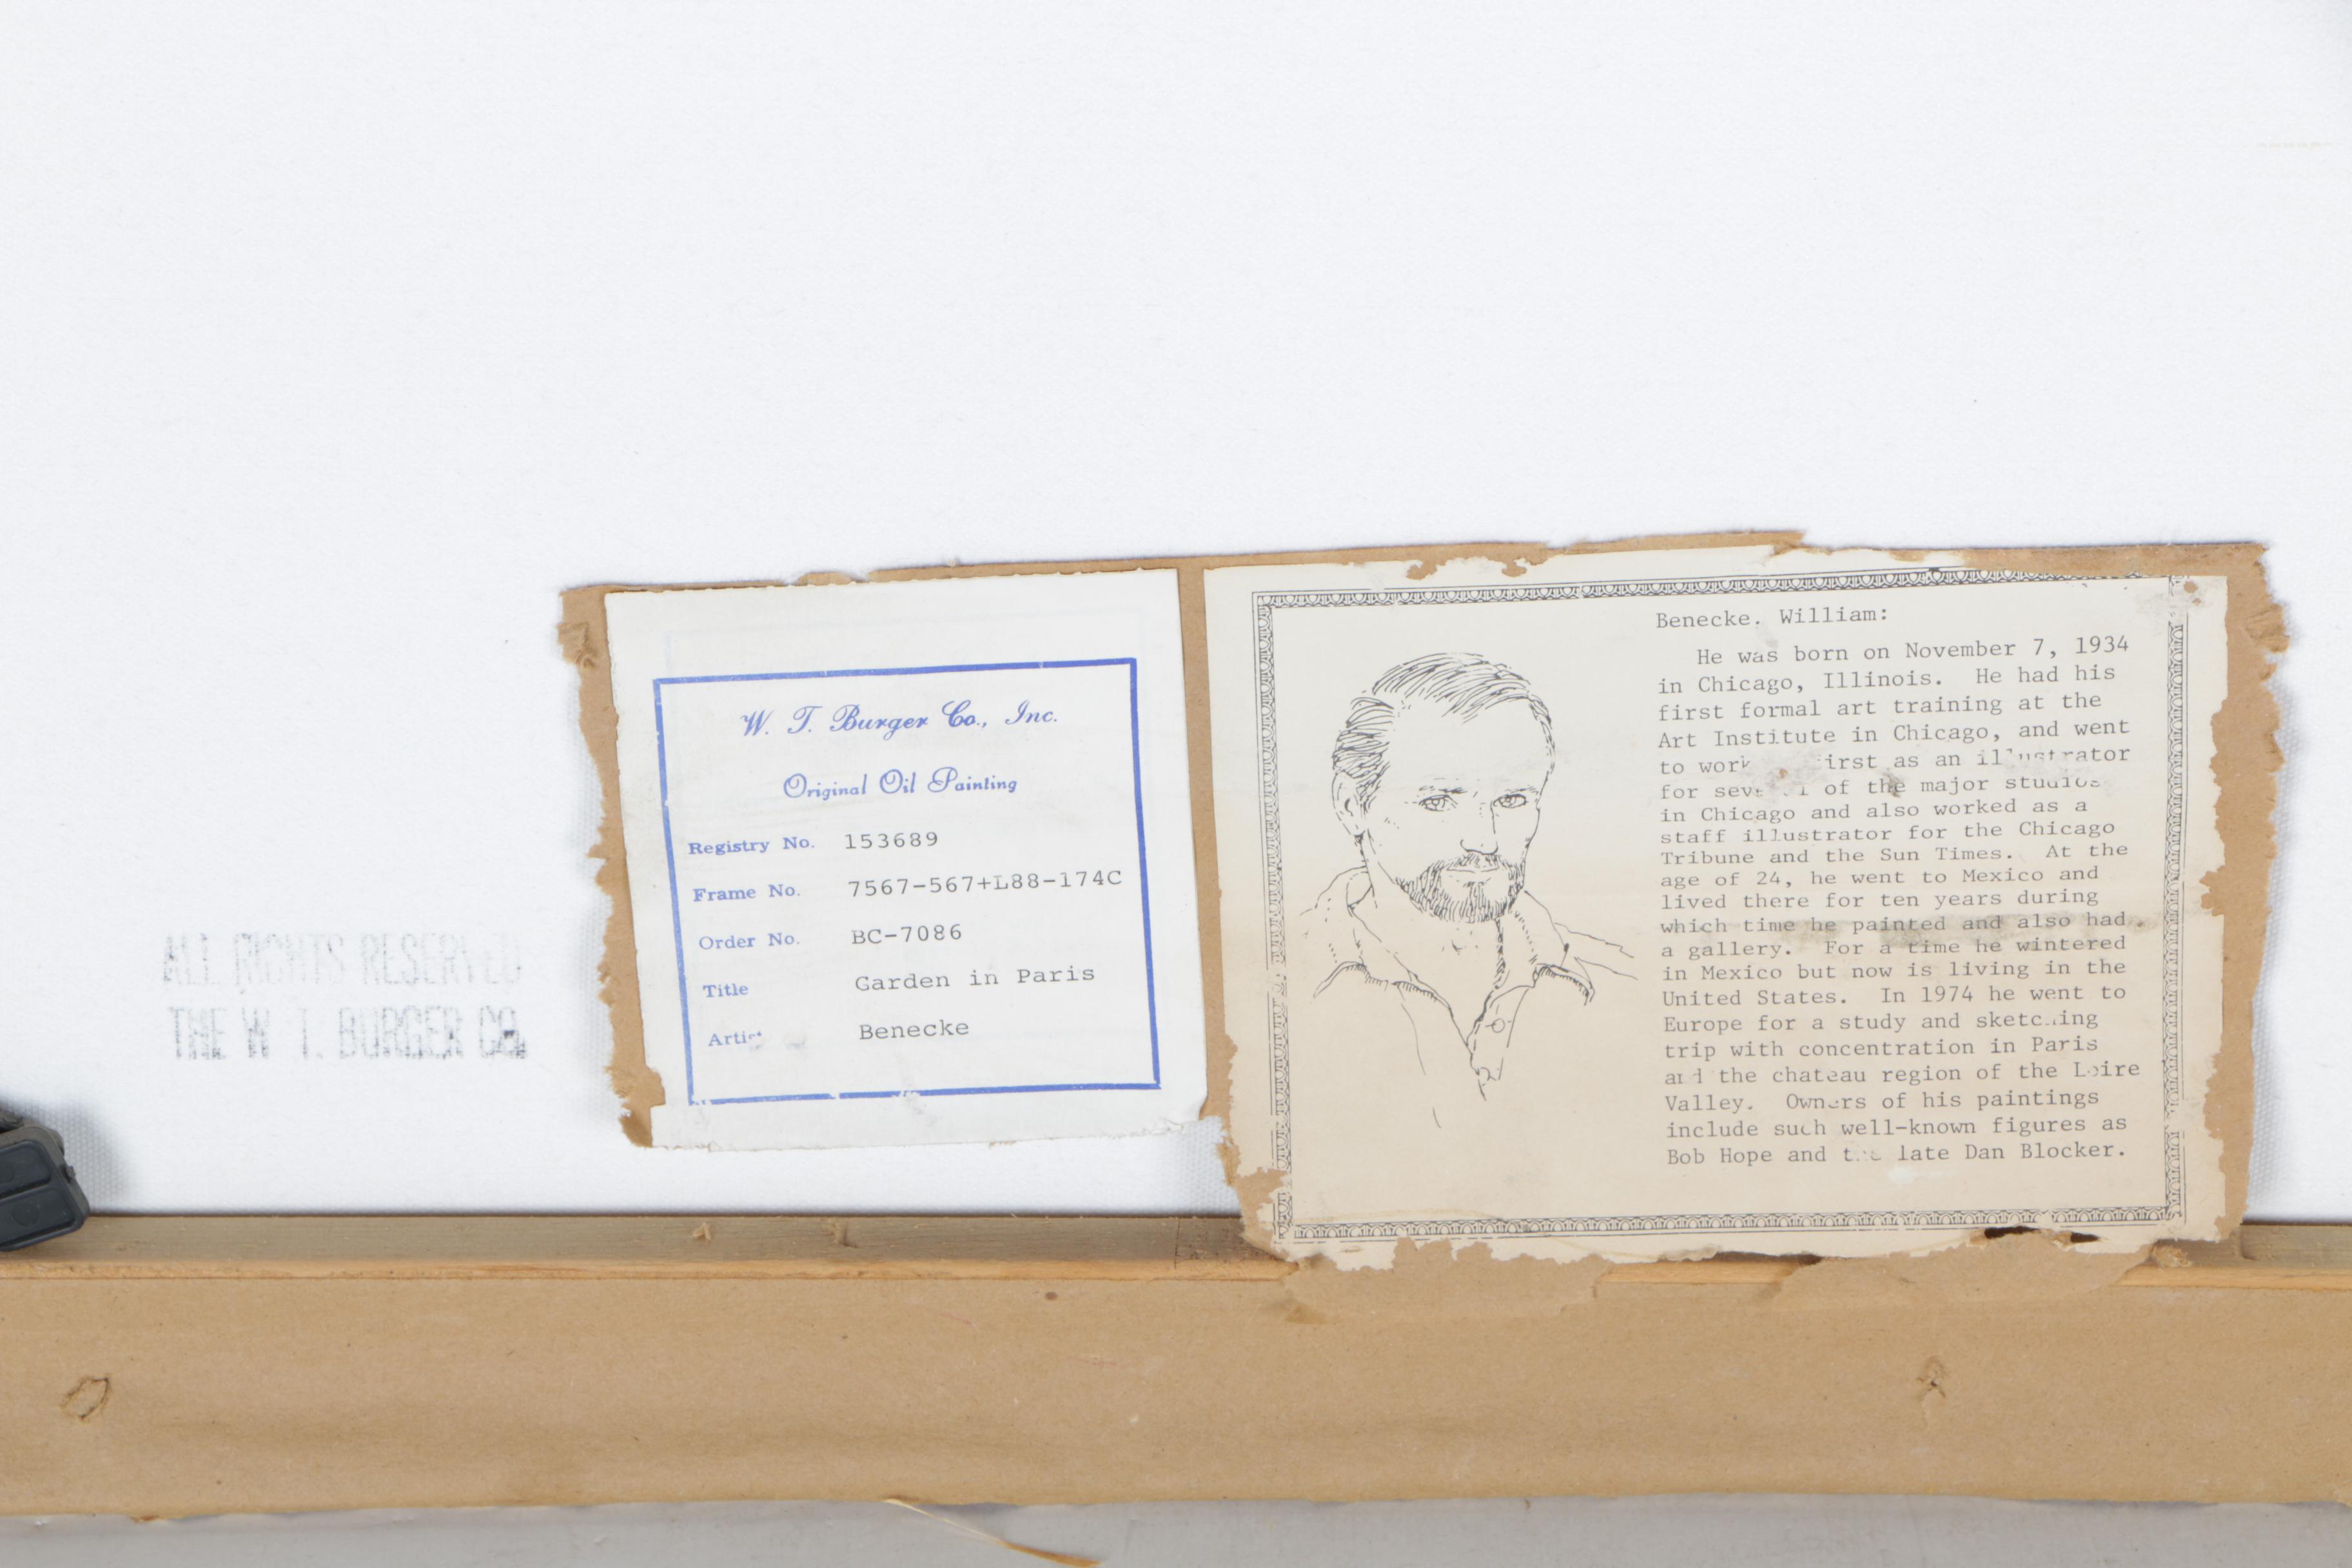 ALL RIGHTS RESERVED
THE W. T. BURGER CO.
W. T. Burger Co., Inc.
Original Oil Painting
Registry No. 153689
Frame No. 7567-567+L88-174C
Order No. BC-7086
Title Garden in Paris
Artist Benecke
Benecke. William:
He was born on November 7, 1934
in Chicago, Illinois. He had his
first formal art training at the
Art Institute in Chicago, and went
to work first as an illustrator
for several of the major studios
in Chicago and also worked as a
staff illustrator for the Chicago
Tribune and the Sun Times. At the
age of 24, he went to Mexico and
lived there for ten years during
which time he painted and also had
a gallery. For a time he wintered
in Mexico but now is living in the
United States. In 1974 he went to
Europe for a study and sketching
trip with concentration in Paris
and the chateau region of the Loire
Valley. Owners of his paintings
include such well-known figures as
Bob Hope and the late Dan Blocker.